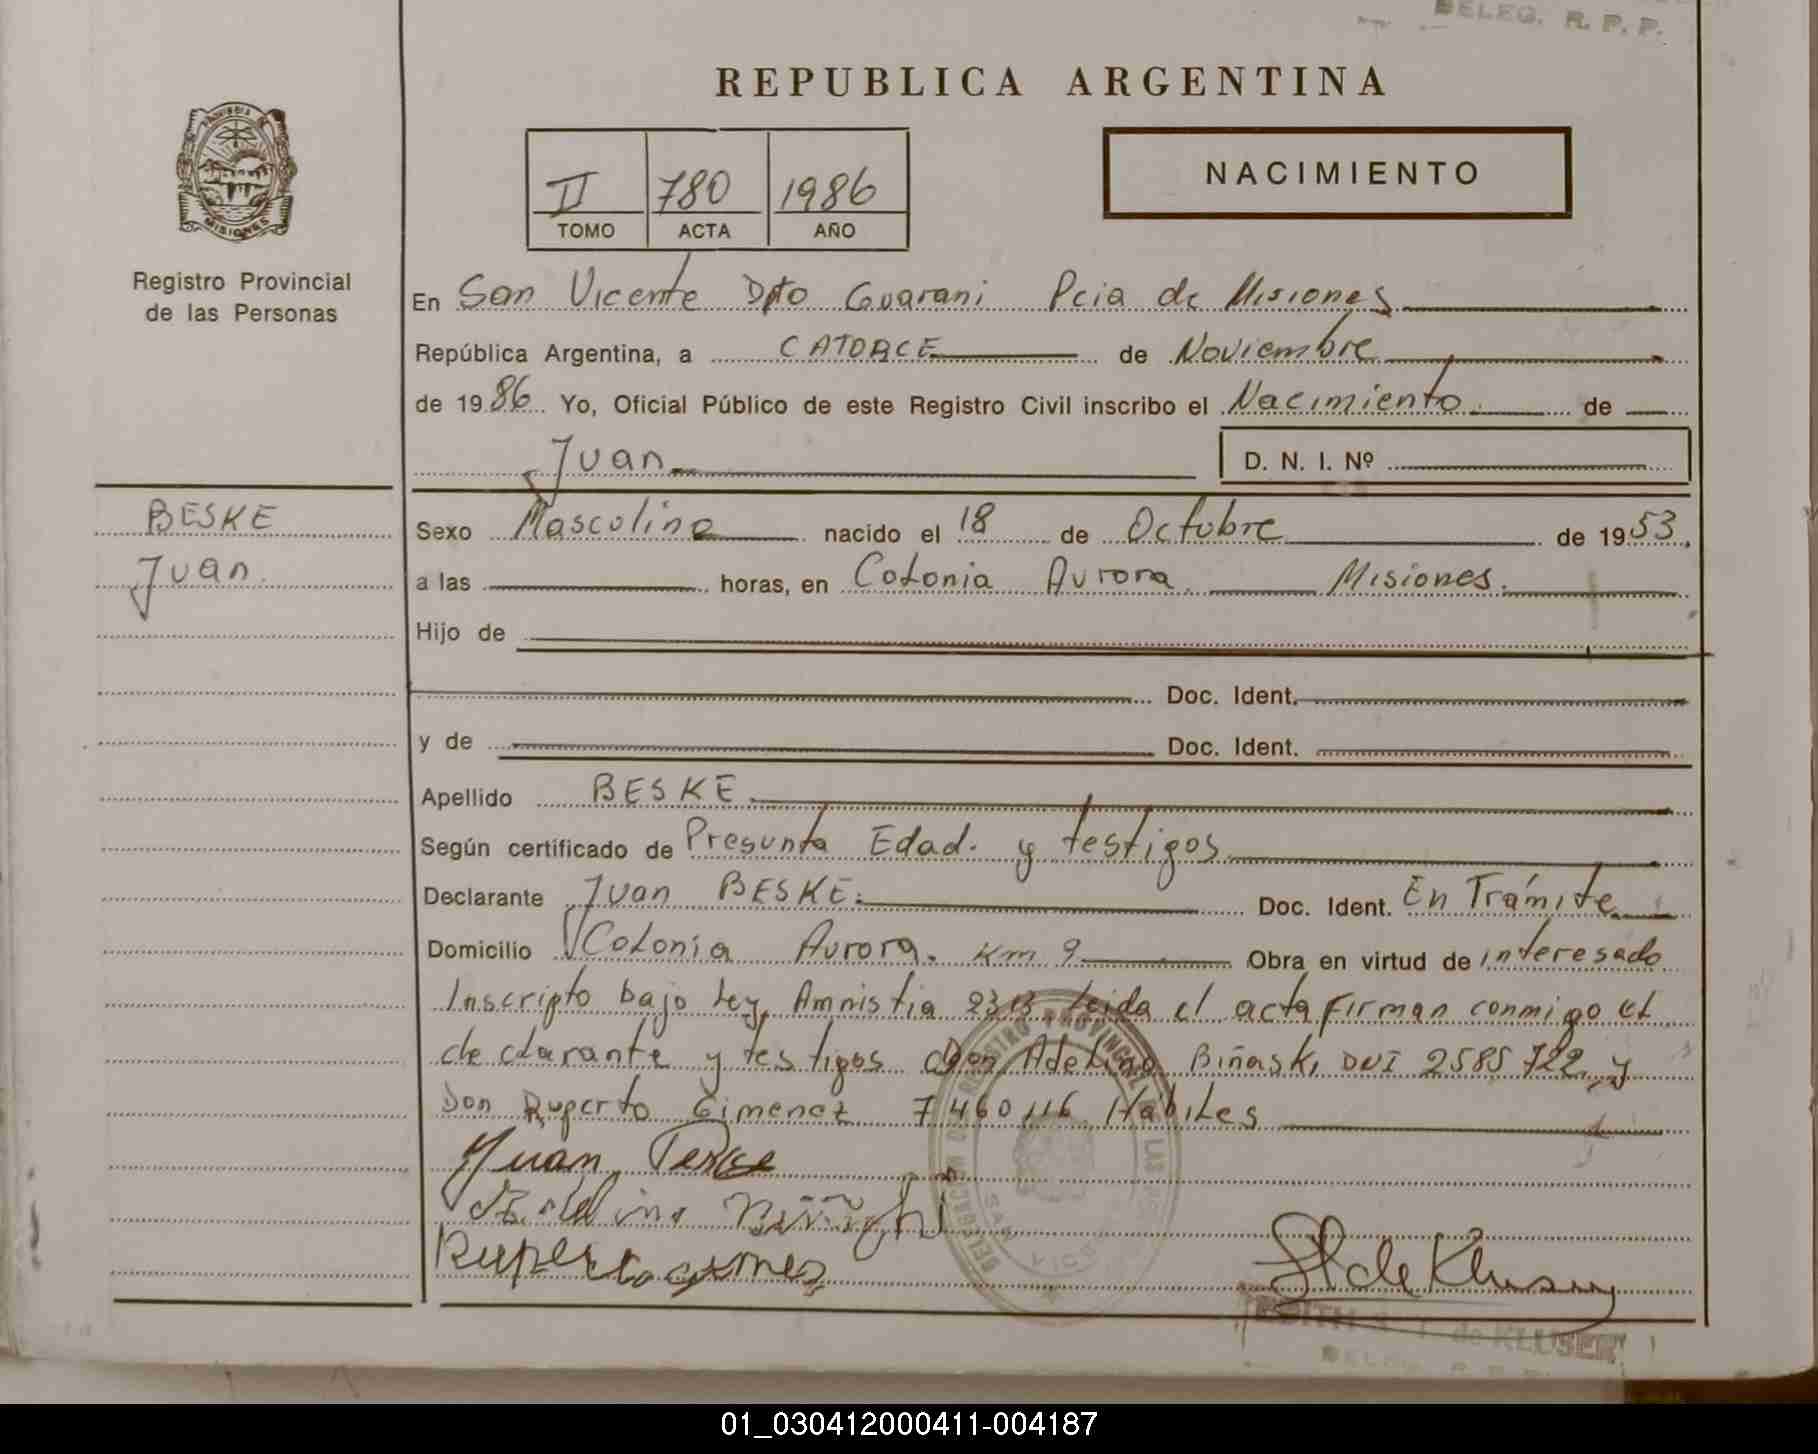 DELEG. R. P. P.
REPUBLICA ARGENTINA
PROVINCIA DE
MISIONES
Registro Provincial
de las Personas
II 780 1986
TOMO ACTA AÑO
NACIMIENTO
En San Vicente Dpto Guarani Pcia de Misiones
República Argentina, a CATORCE de Noviembre
de 1986 Yo, Oficial Público de este Registro Civil inscribo el Nacimiento de
Juan
D. N. I. Nº
BESKE
Juan
Sexo Masculino nacido el 18 de Octubre de 1953.
a las horas, en Colonia Aurora. Misiones.
Hijo de
Doc. Ident.
y de Doc. Ident.
Apellido BESKE
Según certificado de Presunta Edad. y testigos
Declarante Juan BESKE. Doc. Ident. En Trámite
Domicilio Colonia Aurora. Km 9 Obra en virtud de interesado
Inscripto bajo Ley Amnistia 2313 leida el acta firman conmigo el
declarante y testigos Don Adelino Biñaski DNI 2585722 y
Don Ruperto Gimenez 7460116 Habiles
Juan
Ruperto
de Kluser
DELEGACION DEL REGISTRO PROVINCIAL DE LAS
SAN VICENTE
EDITH de KLUSER
DELEG. R. P. P.
01_030412000411-004187